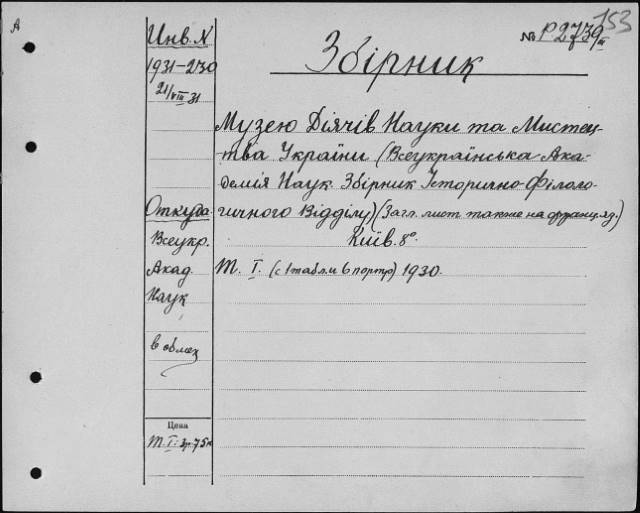 А
Инв. N
1931-230
21/VIII 31
Откуда
Всеукр.
Акад.
Наук
в облож
Цена
Т. I: 3р. 75к
153
№ Р.2739 III
Збірник
Музею Діячів Науки та Мистец-
тва України (Всеукраїнська Ака-
демія Наук. Збірник Історично-Філоло-
гичного Відділу) (Загл. лист также на француз.)
Київ. 8°.
Т. I. (с 1 табл. и 6 портр) 1930.